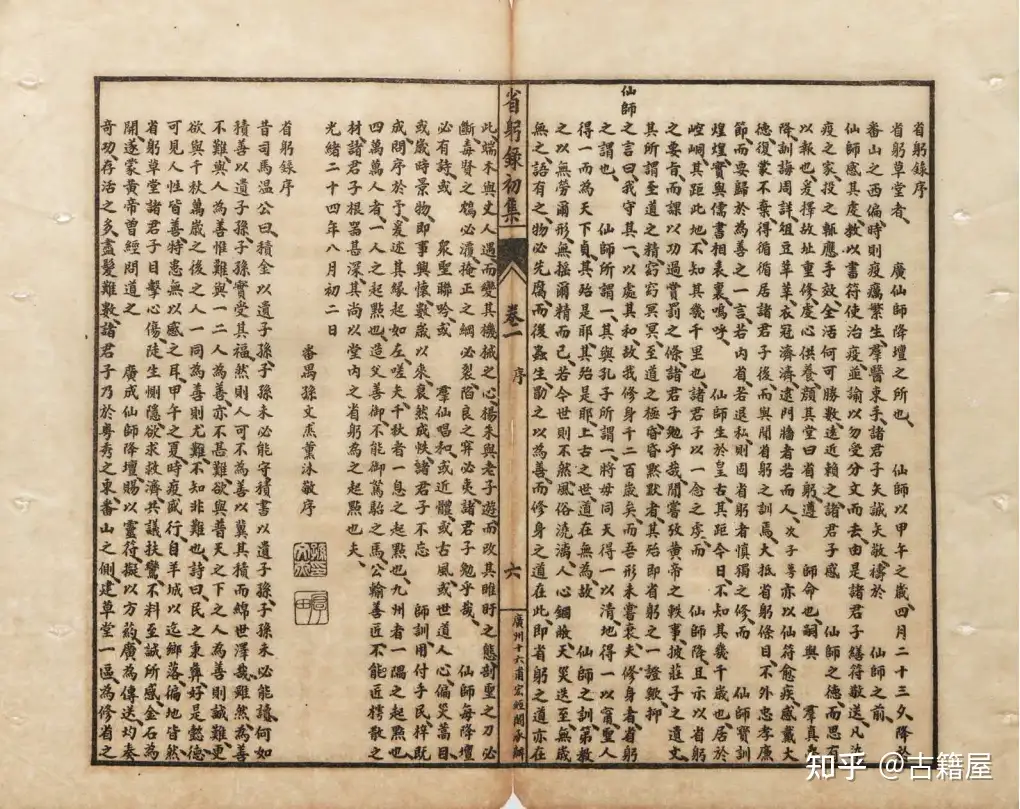 省躬錄序
省躬草堂者、　廣仙師降壇之所也、　仙師以甲午之歲四月二十三夕、降於
番山之西偏、時則疫癘繁生、羣醫束手、諸君子矢誠矢敬、禱於　仙師之前、
仙師感其虔、救以書符、使治疫、並諭以勿受分文而去、由是諸君子繕符敬送、凡染
疫之家、投之輒應手效、全活何可勝數、遠近賴之、諸君子感　仙師之德、而思有
以報也、爰擇故址、重修虔心供養、顏其堂曰省躬、遵　師命也、嗣與　羣真
降訓誨周詳、俎豆莘莘、衣冠濟濟、遠門牆者若而人、次子等亦以仙符愈疾、感戴大
德、復蒙不棄、得循循居諸君子後、而與聞省躬之訓焉、大抵省躬條目、不外忠孝廉
節、而要歸於為善之一言、若內省、若退私、則固省躬者慎獨之修、而　仙師寶訓
煌煌、實與儒書相表裏、嗚呼、　仙師生於皇古、其距今日、不知其幾千歲也、居於
崆峒、其距此地、不知其幾千里也、諸君子以一念之虔、而　仙師降、且示以省躬
之要旨、而課以功過賞罰之條、諸君子勉乎哉、間嘗攷黃帝之軼事、披莊子之遺文、
其所謂至道之精、窈窈冥冥、至道之極、昏昏默默者、其殆即省躬之一證歟、抑
仙師之言曰、我守其一、以處其和、故我修身千二百歲矣、而吾形未嘗衰、夫修身者、省躬
之謂也、　仙師所謂一、其與孔子所謂一、將毋同、天得一以清、地得一以寧、聖人
得一而為天下貞、其殆是耶、其殆是耶、上古之世、道在無為、故　仙師之訓、第教
之以無勞爾形、無搖爾精而已、若今世則不然、風俗澆漓、人心錮蔽、天災迭至、無歲
無之、語有之、物必先腐而後蟲生、勖之以為善、而修身之道在此、即省躬之道亦在
省躬錄初集　卷一　序　六　廣州十六甫宏經閣承辦
此、端木與丈人遇、而變其機械之心、楊朱與老子遊、而改其睢盱之態、剖聖之刀必
斷、毒賢之鴆必覆、掩正之綱必裂、陷良之穽必夷、諸君子勉乎哉、　仙師每降壇、
必有詩、或　眾聖聯吟、或　羣仙唱和、或近體、或古風、或世道人心、偏災蒿目、
或歲時景物、即事興懷、數歲以來、裒然成帙、諸君子不忘　師訓、用付手民、梓既
成、問序於予、爰述其緣起如左、嗟夫、千秋者、一息之起點也、九州者、一隅之起點也、
四萬萬人者、一人之起點也、造父善御、不能御駑駘之馬、公輸善匠、不能匠樗散之
材、諸君子根器甚深、其尚以堂內之省躬為之起點也夫、
光緒二十四年八月初二日
番禺孫文熹薰沐敬序
省躬錄序
昔司馬溫公曰、積金以遺子孫、子孫未必能守、積書以遺子孫、子孫未必能讀、何如
積善以遺子孫、子孫實受其福、然則人可不為善以冀其積而綿世澤哉、雖然、為善
不難、與人為善惟難、與一二人為善亦不甚難、欲與普天之下之人為善則誠難、更
欲與千秋萬歲之後之人一同為善則尤難、不知非難也、詩曰、民之秉彝、好是懿德、
可見人性皆善、特患無以感之耳、甲午之夏、時疫盛行、自羊城以迄鄉落、偏地皆然、
省躬草堂諸君子、目擊心傷、陡生惻隱、欲求救濟、共議扶鸞、不料至誠所感、金石為
開、遂蒙黃帝曾經問道之　廣成仙師降壇、賜以靈符、擬以方藥、廣為傳送、灼奏
奇功、存活之多、盡髮難數、諸君子乃於粵秀之東、番山之側、建草堂一區、為修省之
知乎 @古籍屋